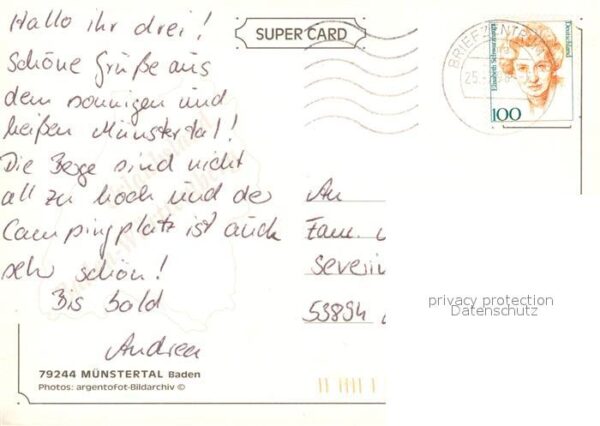 Hallo ihr drei!
SUPER CARD
Schöne Grüße aus
dem sonnigen und
heißen Münstertal!
Die Berge sind nicht
all zu hoch und der
Campingplatz ist auch
sehr schön!
Bis bald
Andrea
79244 MÜNSTERTAL Baden
Photos: argentofot-Bildarchiv ©
BRIEFZENTRUM
25.
Deutschland
Elisabeth Schwarzhaupt
100
An
Fam.
Severin
53894
privacy protection
Datenschutz